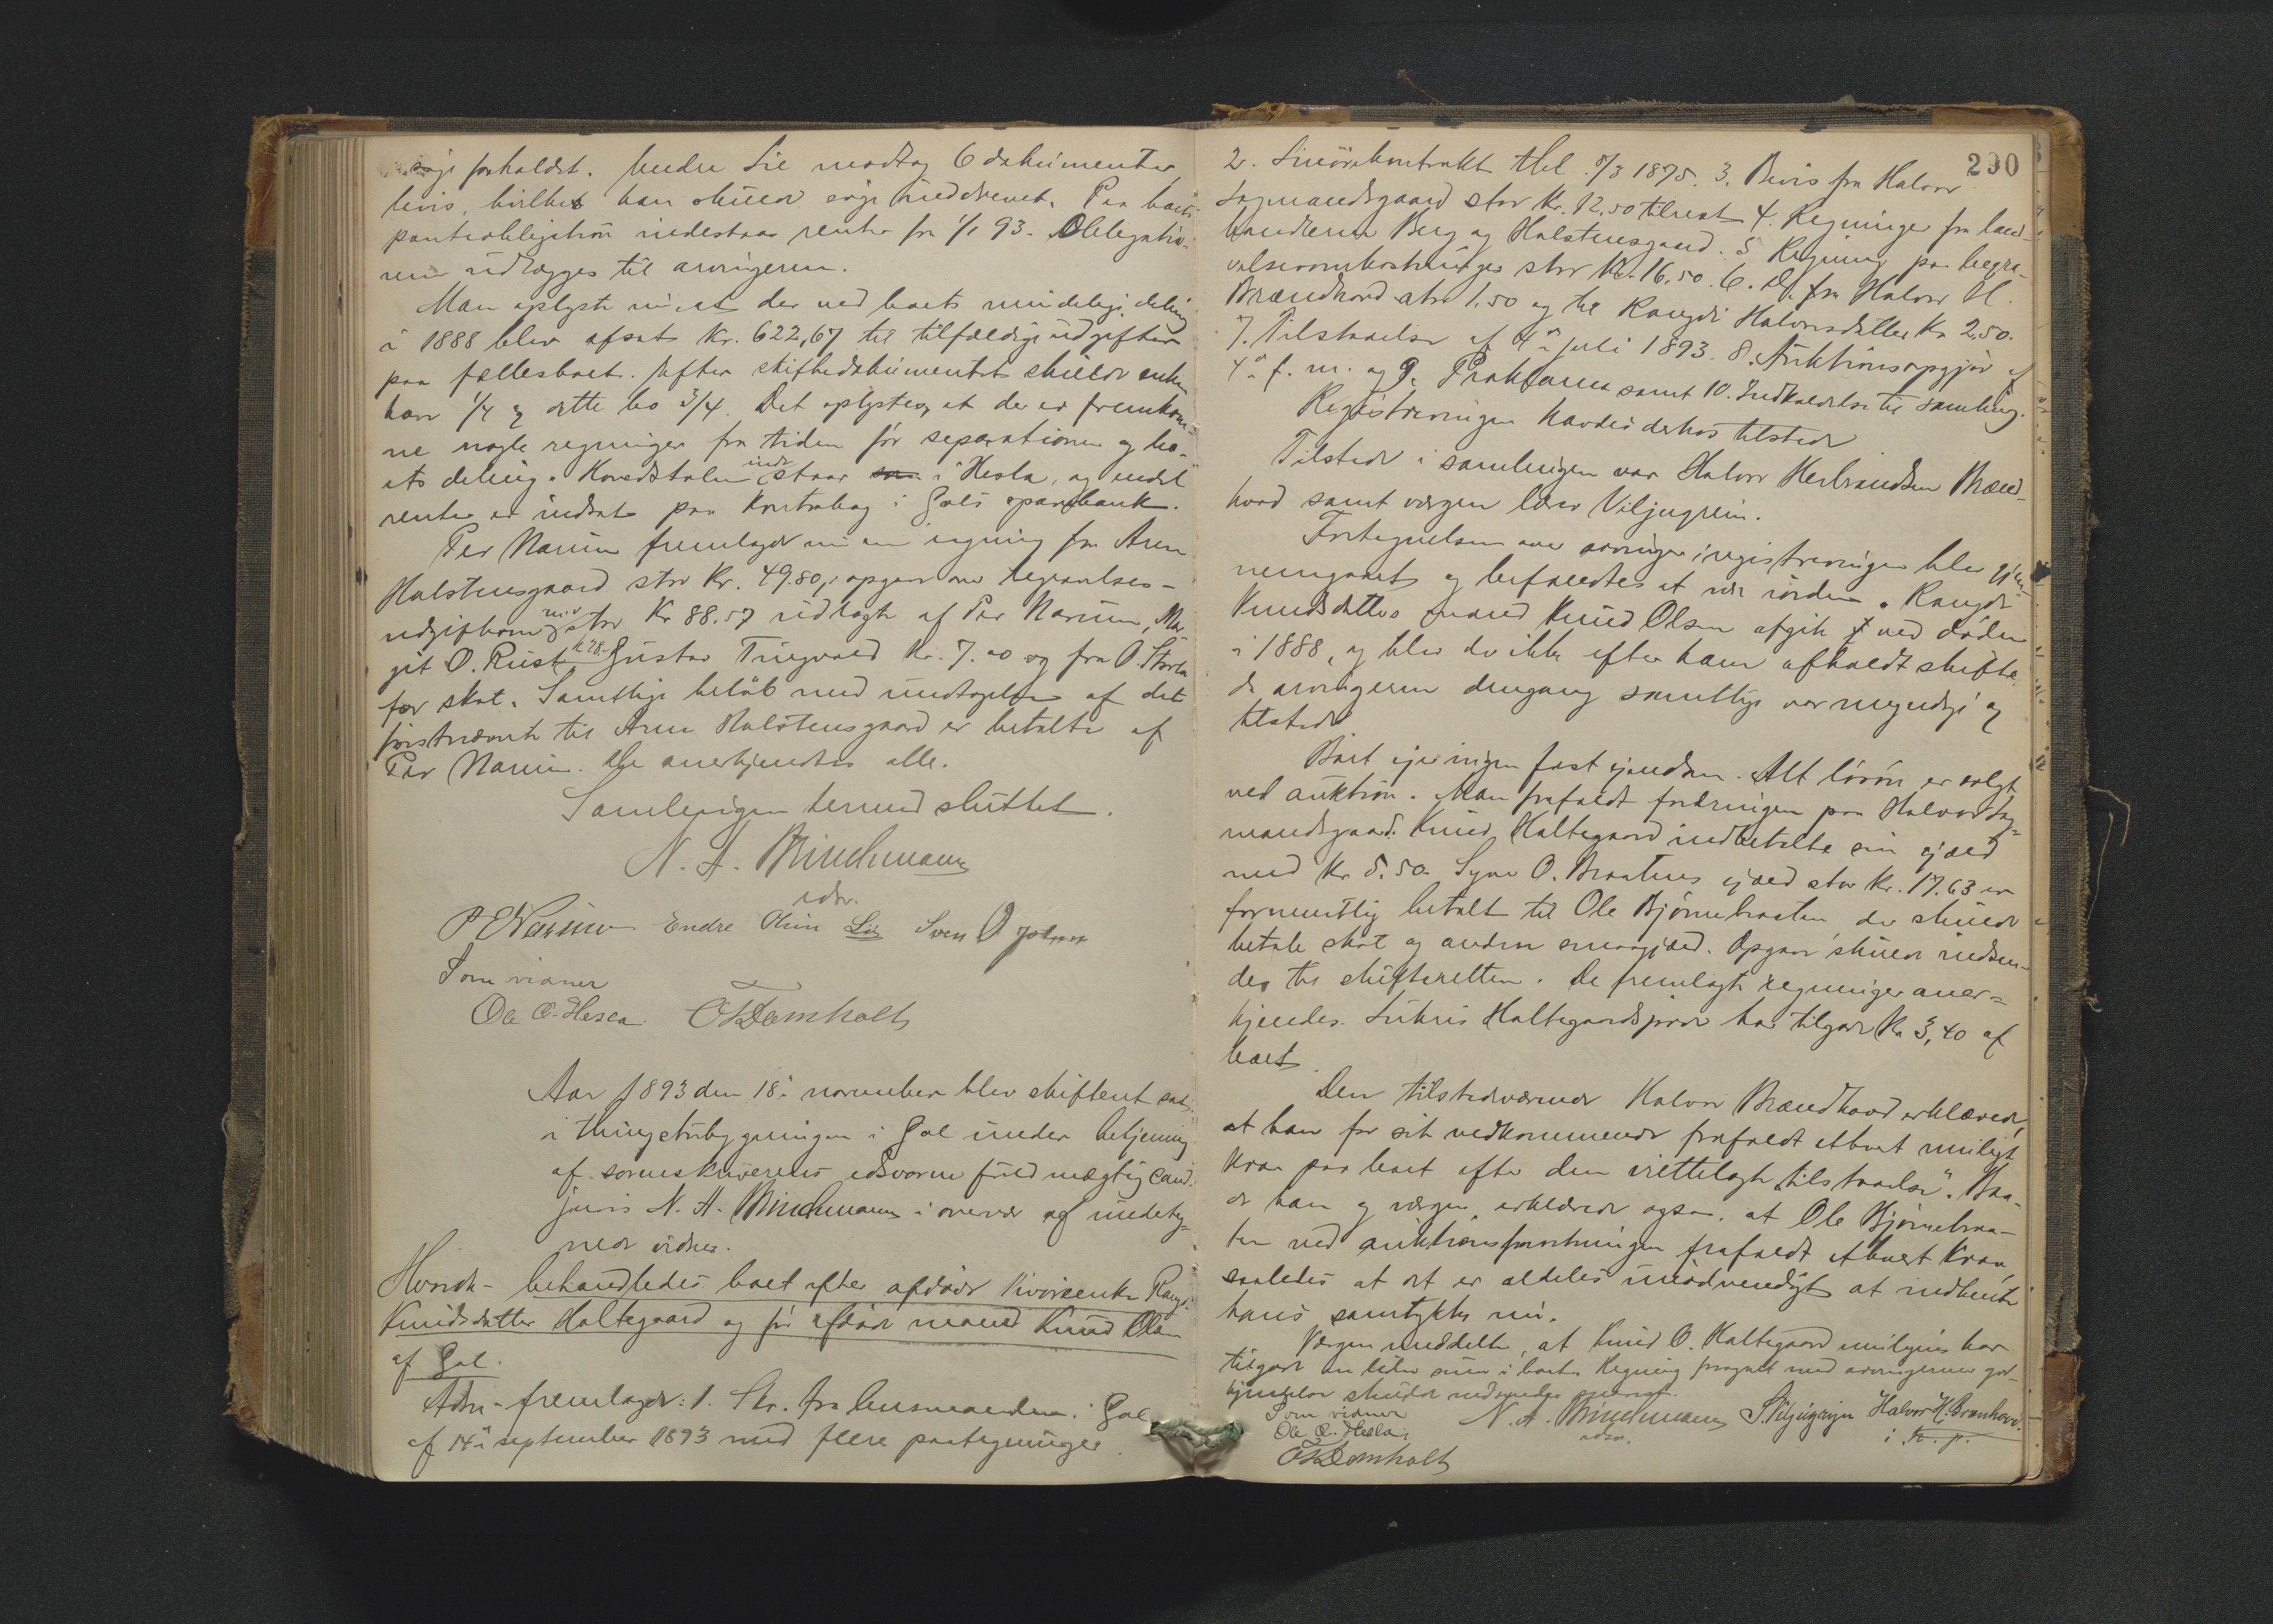 søge forholdt. Endre Lie modtog 6 dokumenter
bevis, hvilket han skulde søge inddrevet. Paa boets
pantobligation indestaar renter fra 1/1 93. Obligatio-
nen udlægges til arvingerne.
Man oplyste nu at der ved boets mindelige deling
i 1888 blev afsat Kr. 622,67 til tilfældige udgifter
paa fællesboet. Efter skiftedokumentet skulde enken
have 1/4 og dette bo 3/4. Det oplystes, at der er fremkom-
ne nogle regninger fra tiden før separationen og bo-
ets deling. Hovedstolen inde staar i Hesla, og endel
renter er indsat paa Kontrabog i Gols sparebank.
Per Narum fremlagde nu en regning fra Arne
Halstensgaard stor Kr. 49.80, opgave over begravelses-
udgifterne stor Kr 88.57 udlagte af Per Narum, Ma-
git O. Rust k 28. Gustav Tingvold Kr. 7.00 og fra O. Storla
for skat. Samtlige beløb med undtagelse af det
førstnævnte til Arne Halstensgaard er betalte af
Per Narum. De anerkjendtes alle.
Samlingen hermed sluttet.
N. A. Brinchmann
edsv.
P E Narum Endre Olsen Lie Sven O
Som vidner
Ole O. Hesla. O Domholt
Aar 1893 den 18de november blev skifteret sat
i thingstubygningen i Gol under betjening
af sorenskriverens edsvorne fuldmægtig cand.
juris N. A. Brinchmann i overvær af undeteg-
nede vidner.
Hvorda- behandledes boet efter afdøde kivørenke Rangdi
Knudsdatter Haltegaard og før afdøde mand Knud Olsen
af Gol.
Adm- fremlagde: 1. Skr. fra lensmanden i Gol
af 14de september 1893 med flere paategninger
290
2. Livørekontrakt thl. 8/3 1875. 3. Bevis fra Halvor
Sagmandsgaard stor Kr. 12.50 tilrest 4. Regninger fra land-
handlerne Berg og Halstensgaard. 5 Regning paa begra-
velsesomkostninger stor Kr. 16.50. 6. Do. fra Halvor H.
Brændhovd stor 1.50 og til Rangdi Halvorsdatter Kr 2.50.
7. Tilstaaelse af 4de juli 1893. 8. Auktionsopgjør af
4de f. m. og 9. Proklama samt 10. Indkaldelse til samling.
Registreringen havdes derhos tilstede
Tilstede i samlingen var Halvor Herbrandsen Brænd-
hovd samt værgen lærer Viljugrein.
Fortegnelsen over arvinger i registreringen blev gjen-
nemgaaet og befandtes at være iorden. Rangdi
Knudsdatters mand Knud Olsen afgik ved døden
i 1888, og blev der ikke efter ham afholdt skifte
da arvingerne dengang samtlige var myndige og
tilstede
Boet eier ingen fast eiendom. Alt løsøre er solgt
ved auktion. Man frafaldt fordringen paa Halvor Sag-
mandsgaard. Knud Haltegaard indbetalte sin gjæld
med Kr 5.50. Syver O. Braatens gjæld stor Kr. 17.63 er
formentlig betalt til Ole Bjørnebraaten, der skulde
betale skat og anden smaagjæld. Opgave skulde indsen-
des til skifteretten. De fremlagte regninger aner-
kjendes. Lukris Haltegaardsjorde har tilgode Kr 3,40 af
boet
Den tilstedeværende Halvor Brændhovd erklærede,
at han for sit vedkommende frafaldt ethvert muligt
krav paa boet efter den irettelagte "tilstaaelse". Baa-
de han og værgen erklærede ogsaa, at Ole Bjørnebraa-
ten ved auktionsforretningen frafaldt ethvert krav,
saaledes at det er aldeles unødvendigt at indhente
hans samtykke nu.
Værgen meddelte, at Knud O. Haltegaard muligens har
tilgode en liden sum i boet. Regning forsynet med arvingernes god-
kjendelse skulde indsendes
Som vidner
Ole O. Hesla
O Domholt
N. A. Brinchmann
edsv.
S. Viljugrein Halvor H. Brænhovd
i h. p.